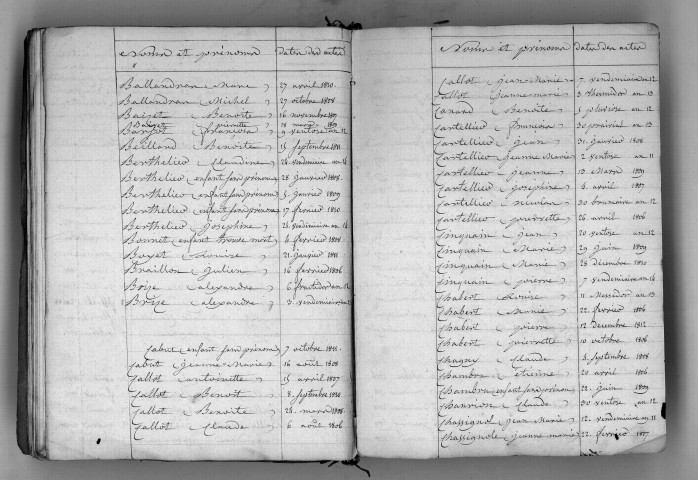 Noms et prénoms dates des actes
Ballandran Marie 27 avril 1810.
Ballandran Michel 27 octobre 1808
Benoite 16 novembre 1807
pierrette 18 mars 1809
françois 9 ventose an 12
Benoite 15 septembre 1811
Berthelier Claudine vendemiaire an 14
Berthelier enfant sans prénom 28 Janvier 1808.
Berthelier enfant sans prénom 5. Janvier 1809
Berthelier enfant sans prénom 17 fevrier 1810
Berthelier Josephine vendemiaire an 14
Bonnet enfant trouvé mort 6 fevrier 1808
Boyet Louise 21 Janvier 1811
Braillon Julien 16 fevrier 1806
Brize alexandre 6 fructidor an 12
Brize alexandre 3 vendemiaire
Cabut enfant sans prénom 7 octobre 1811.
Cabut Jeanne Marie 16 août 1808
Callot antoinette 15 avril 1807
Callot Benoit 8. Septembre 1810
Callot Benoite 26. mars 1808
Callot Claude 6 août 1806
Noms et prénoms dates des actes
Callot Jean Marie 7. vendemiaire an 12
Callot Jeanne marie 3 thermidor an 13
Canard Benoite 5 pluviose an 12
Cartellier françois 30 prairial an 13
Cartellier Jean 31 Janvier 1808
Cartellier Jeanne Marie 2 ventose an 11
Cartellier Jeanne 13 Mars 1809
Cartellier Josephine 6. avril 1807
Cartellier 30 brumaire an 12
Cartellier pierrette 26 avril 1806
Cinquain Jean 20 ventose an 12
Cinquain Marie 29 Juin 1809
Cinquain Marie 28 décembre 1810
Cinquain pierre 7 vendemiaire an 14
Chabert Louise 11 Messidor an 13
Chabert Marie 22. fevrier 1806
Chabert pierre 12 Decembre 1812
Chabert pierrette 10 octobre 1806
Chagny Claude 6 Septembre 1808
Chambra etienne 20 avril 1806
Chambru enfant sans prénom 22. Juin 1809
Chanrion Claude 30 ventose an 12
Chassignol Jean Marie 12. vendemiaire an 11
Chassignole Jeanne marie 22. fevrier 1807